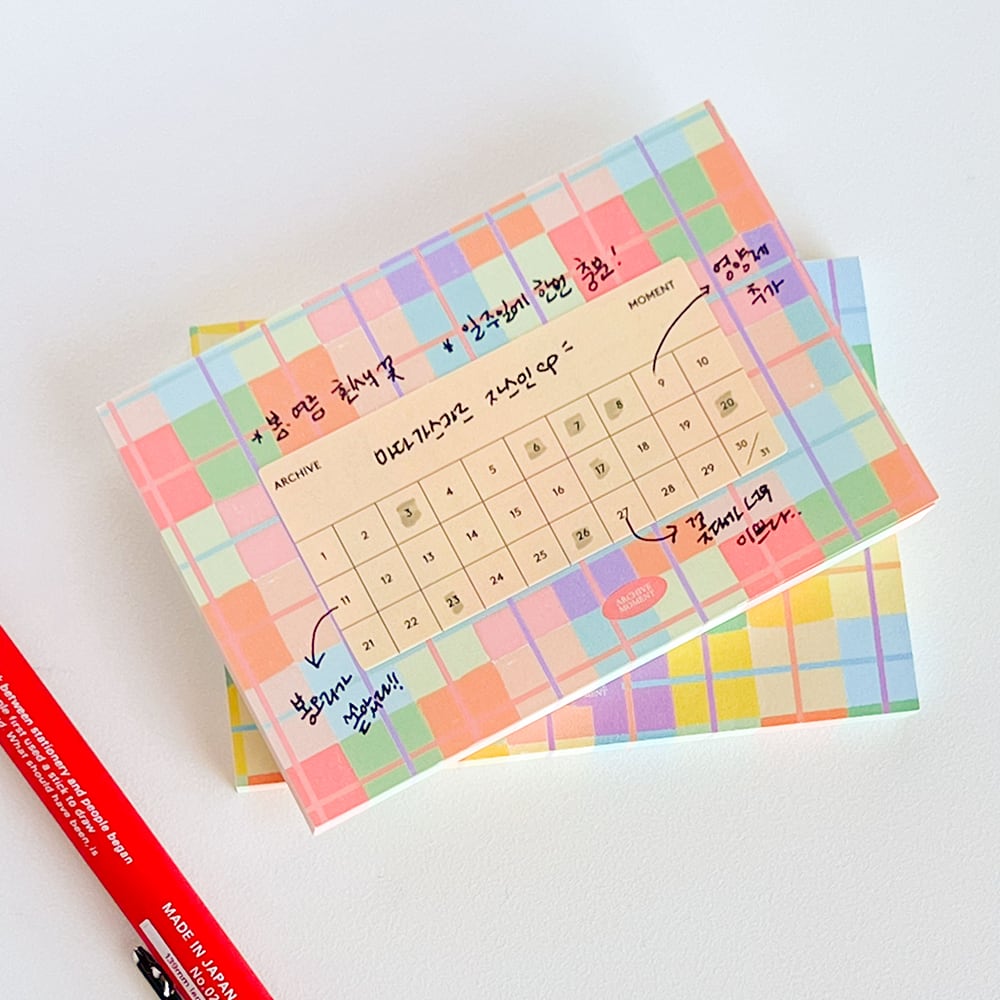 * 봄. 여름 흰색 꽃
* 일주일에 한번 충분!
영양제
추가
ARCHIVE
MOMENT
마다가스카르 자스민
1 2 3 4 5 6 7 8 9 10
11 12 13 14 15 16 17 18 19 20
21 22 23 24 25 26 27 28 29 30/31
꽃대가 너무
이쁘다..
봉오리가
쏟았다!!
ARCHIVE
MOMENT
between stationery and people began
people first used a stick to draw
What should have been, is
MADE IN JAPAN
No.02